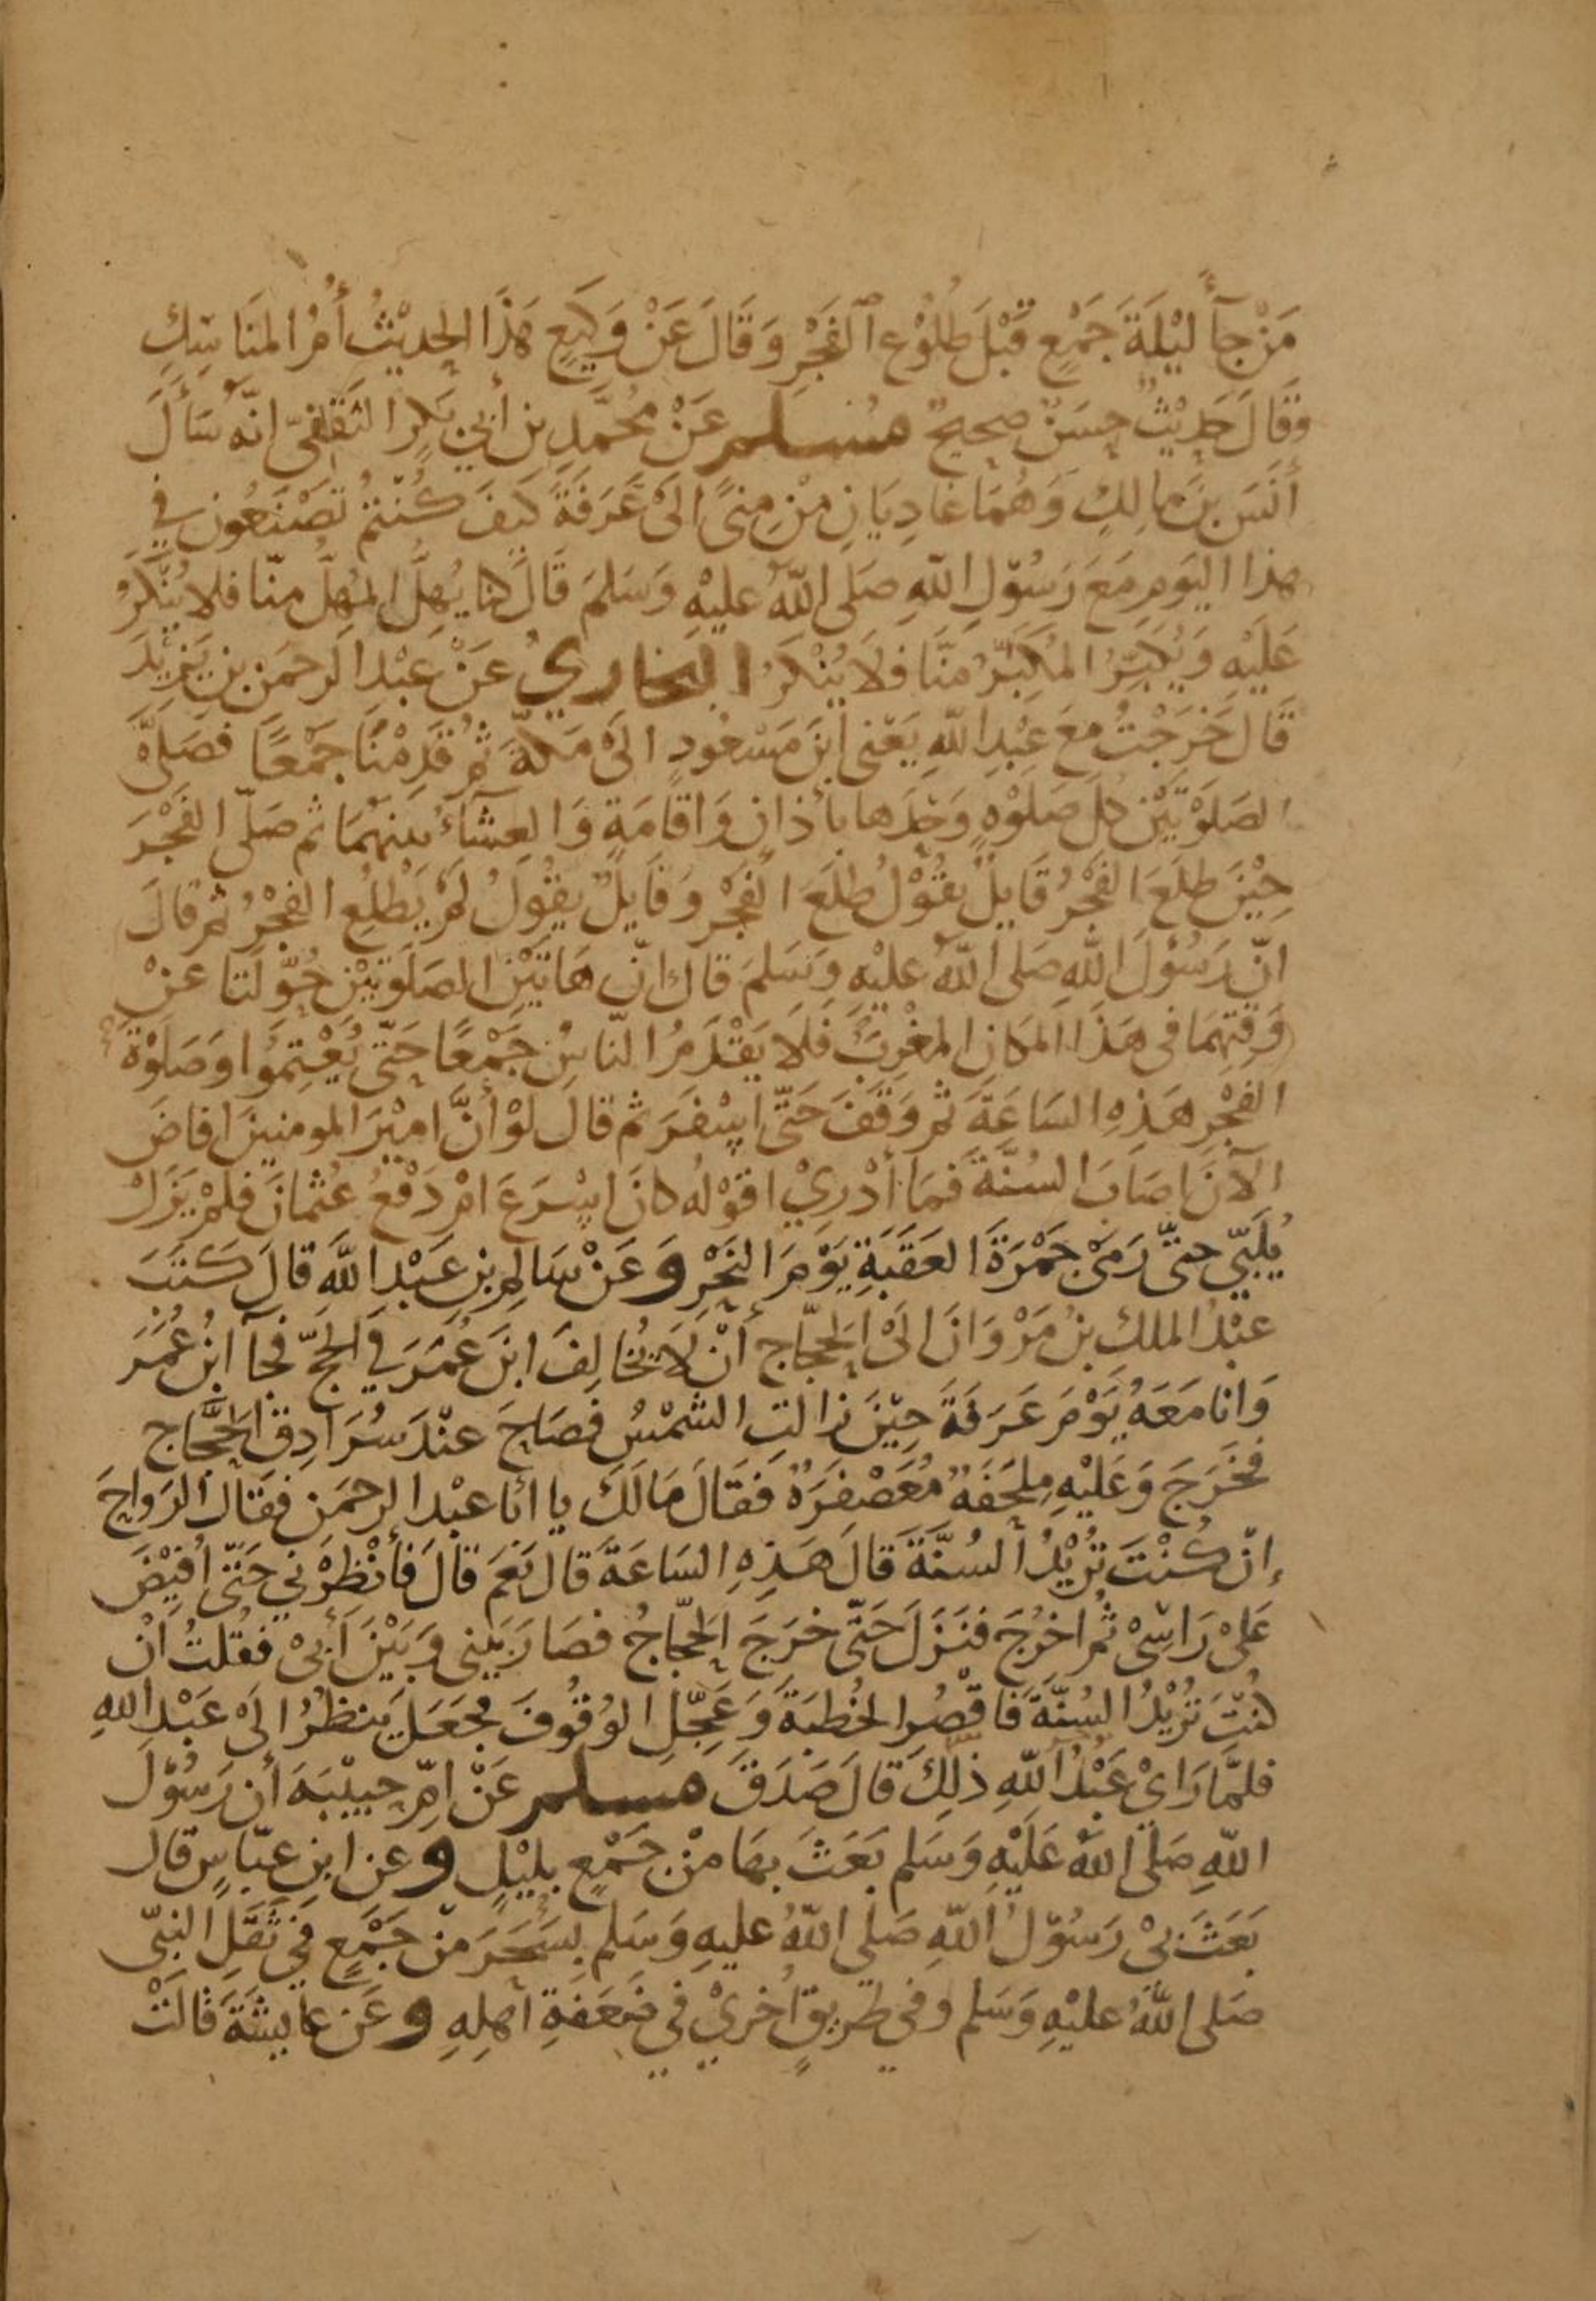 مَنْ جآءَ لَيْلَةَ جَمْعٍ قَبْلَ طُلُوْعِ ٱلفَجْرِ وَقَالَ عَنْ وَكِيْعٍ هَذَا الحَدِيْثُ أُمُّ المَنَاسِكِ
وَقَالَ حَدِيْثٌ حَسَنٌ صحيحٌ مُسْلِم عَنْ مُحَمَّدِ بنِ أَبي بَكرٍ الثَقَفيّ انّهُ سَأَلَ
أَنَسَ بنَ مَالِكٍ وَهُمَا غَادِيَانِ مِنْ مِنىً الَىْ عَرَفَةَ كَيْفَ كُنْتُمْ تَصْنَعُونَ في
هذا اليَومِ مَعَ رَسُوْلِ اللّهِ صَلى اللّهُ عَليْهِ وَسَلمَ قَالَ كنا يُهِلُّ المُهِلُّ مِنّا فلا يُنْكَرُ
عَلَيْهِ وَيُكَبِّرُ المُكَبِّرُ مِنَّا فلَا يُنْكَرُ البخاريُ عَنْ عَبْدِ الرحمَنِ بنِ يَزِيْدَ
قَالَ خَرَجْتُ مَعَ عَبْدِ اللّهِ يَعْنى ابْنَ مَسْعُودٍ الَىْ مَكّةَ ثُمّ قَدِمْنَا جَمْعًا فَصَلَّى
الصَلَوْتَيْنِ كُلَّ صَلوْةٍ وَحْدَها بأَذَانٍ وَاقَامَةٍ وَالعَشآءُ بينهُمَا ثم صَلّى الفَجْرَ
حِيْنَ طلَعَ الفَجْرُ قَايِلٌ يقُوْلُ طَلَعَ الفَجْرُ وَقَايِلٌ يقُولُ لَمْ يَطْلُعِ الفَجْرُ ثم قالَ
انّ رَسُوْلَ اللّهِ صَلى اللّهُ عليْهِ وَسَلمَ قالَ انّ هَاتَيْنِ الصَلَوتَيْنِ حُوِّلَتا عنْ
وَقتِهمَا فى هَذَا المَكانِ المَغْرِبَ فَلَا يَقْدَمُ النّاسُ جَمْعًا حَتّى يُعْتِمُوا وَصَلوْةَ
الفجْرِ هَذِهِ السَاعَةَ ثم وَقَفَ حَتّى اسْفَرَ ثم قالَ لوْ أنَّ امِيْرَ المومنينَ افاضَ
الآنَ اصَابَ السُنّةَ فَمَا أَدْرِيْ اقوْلهُ كانَ اسْرَعَ امْ دَفْعُ عُثمانَ فلمْ يَزَلْ
يُلَبّي حتّى رَمَىْ جَمْرَةَ العَقَبَةِ يَوْمَ النَحْرِ وَعَنْ سَالِمِ بنِ عَبْدِ اللَّهِ قالَ كَتَبَ
عَبْدُ الملكِ بنُ مَرْوَانَ الىْ الحَجّاجِ أنْ لَا تُخَالِفَ ابنَ عُمَرَ في الحَجّ فجآ ابنُ عُمَرَ
وَانا مَعَهُ يَوْمَ عَرَفَةَ حِيْنَ زالتِ الشمْسُ فصَاحَ عنْدَ سُرَادِقِ الحَجّاجِ
فخَرَجَ وَعَليْهِ مِلحَفَةٌ مُعَصْفَرَةٌ فَقَالَ مَالَكَ يا ابا عبْد الرحمَنِ فقَالَ الرَواحَ
إنْ كُنْتَ تُرِيْدُ السُنَّةَ قالَ هَذِهِ السَاعَةَ قالَ نَعَمْ قالَ فَأَنْظِرْني حَتّى أُفيْضَ
عَلىْ رَاسِىْ ثُم اخْرُجَ فنَزَلَ حَتّى خرَجَ الحَجّاجُ فصَارَ بَيْني وَبَيْنَ أَبىْ فقُلتُ انْ
كُنْتَ تُرِيْدُ السُنّةَ فَاقْصُرِ الخُطبَةَ وَعَجِّلِ الوُقُوفَ فجَعَلَ يَنظُرُ الىْ عَبْدِ اللهِ
فلَمَّا رَايْ عَبْدُ اللّهِ ذلِكَ قالَ صَدَقَ مسلم عَنْ امِّ حبيْبَةَ أن رَسُوْلَ
اللّهِ صَلّى اللّهُ عَلَيْهِ وَسَلم بَعَثَ بهَا منْ جَمْعٍ بلَيْلٍ وعن ابنِ عبّاسٍ قال
بَعَثَ بىْ رَسُوْلُ اللّهِ صَلى اللّهُ عليهِ وَسَلم بسَحَرَ منْ جَمْعٍ فِي ثَقَلِ النبّي
صَلى اللّهُ عليْهِ وَسَلم وفي طريقٍ أُخريْ في ضَعَفَةِ أهلِهِ وعَن عايشَةَ قالَتْ